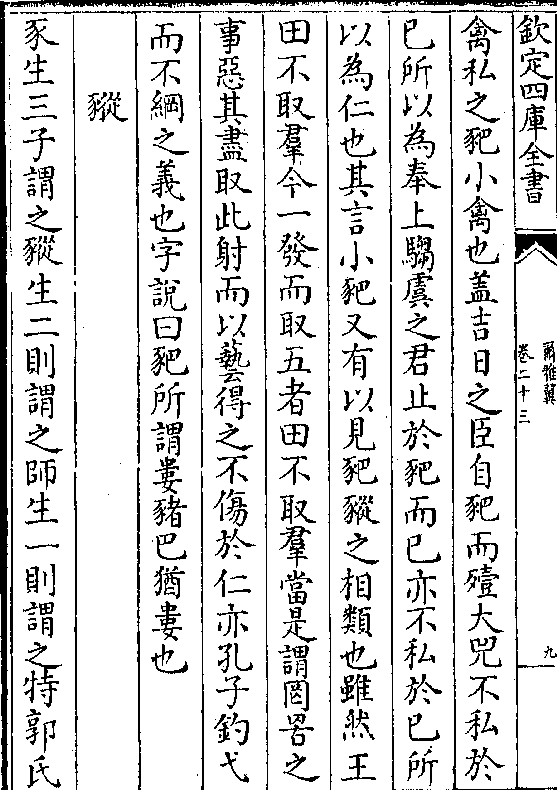 欽定四庫全書
爾雅翼
卷二十三
九
禽私之豝小禽也盖吉日之臣自豝而殪大兕不私於
已所以為奉上騶虞之君止於豝而已亦不私於已所
以為仁也其言小豝又有以見豝豵之相類也雖然王
田不取羣今一發而取五者田不取羣當是謂罔罟之
事惡其盡取此射而以藝得之不傷於仁亦孔子釣弋
而不綱之義也字說曰豝所謂婁豬巴猶婁也
豵
豕生三子謂之豵生二則謂之師生一則謂之特郭氏